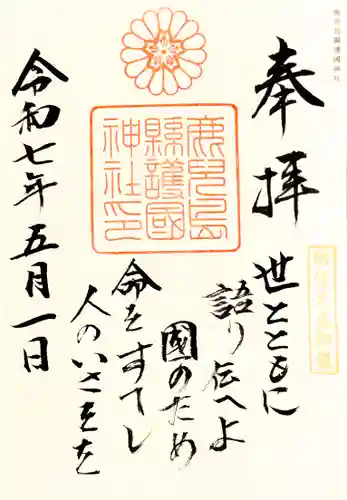 鹿児島縣護國神社
奉拝
世とともに
語り伝へよ
國のため
命をすてし
人のいさをを
鹿兒島
縣護國
神社印
令和七年五月一日